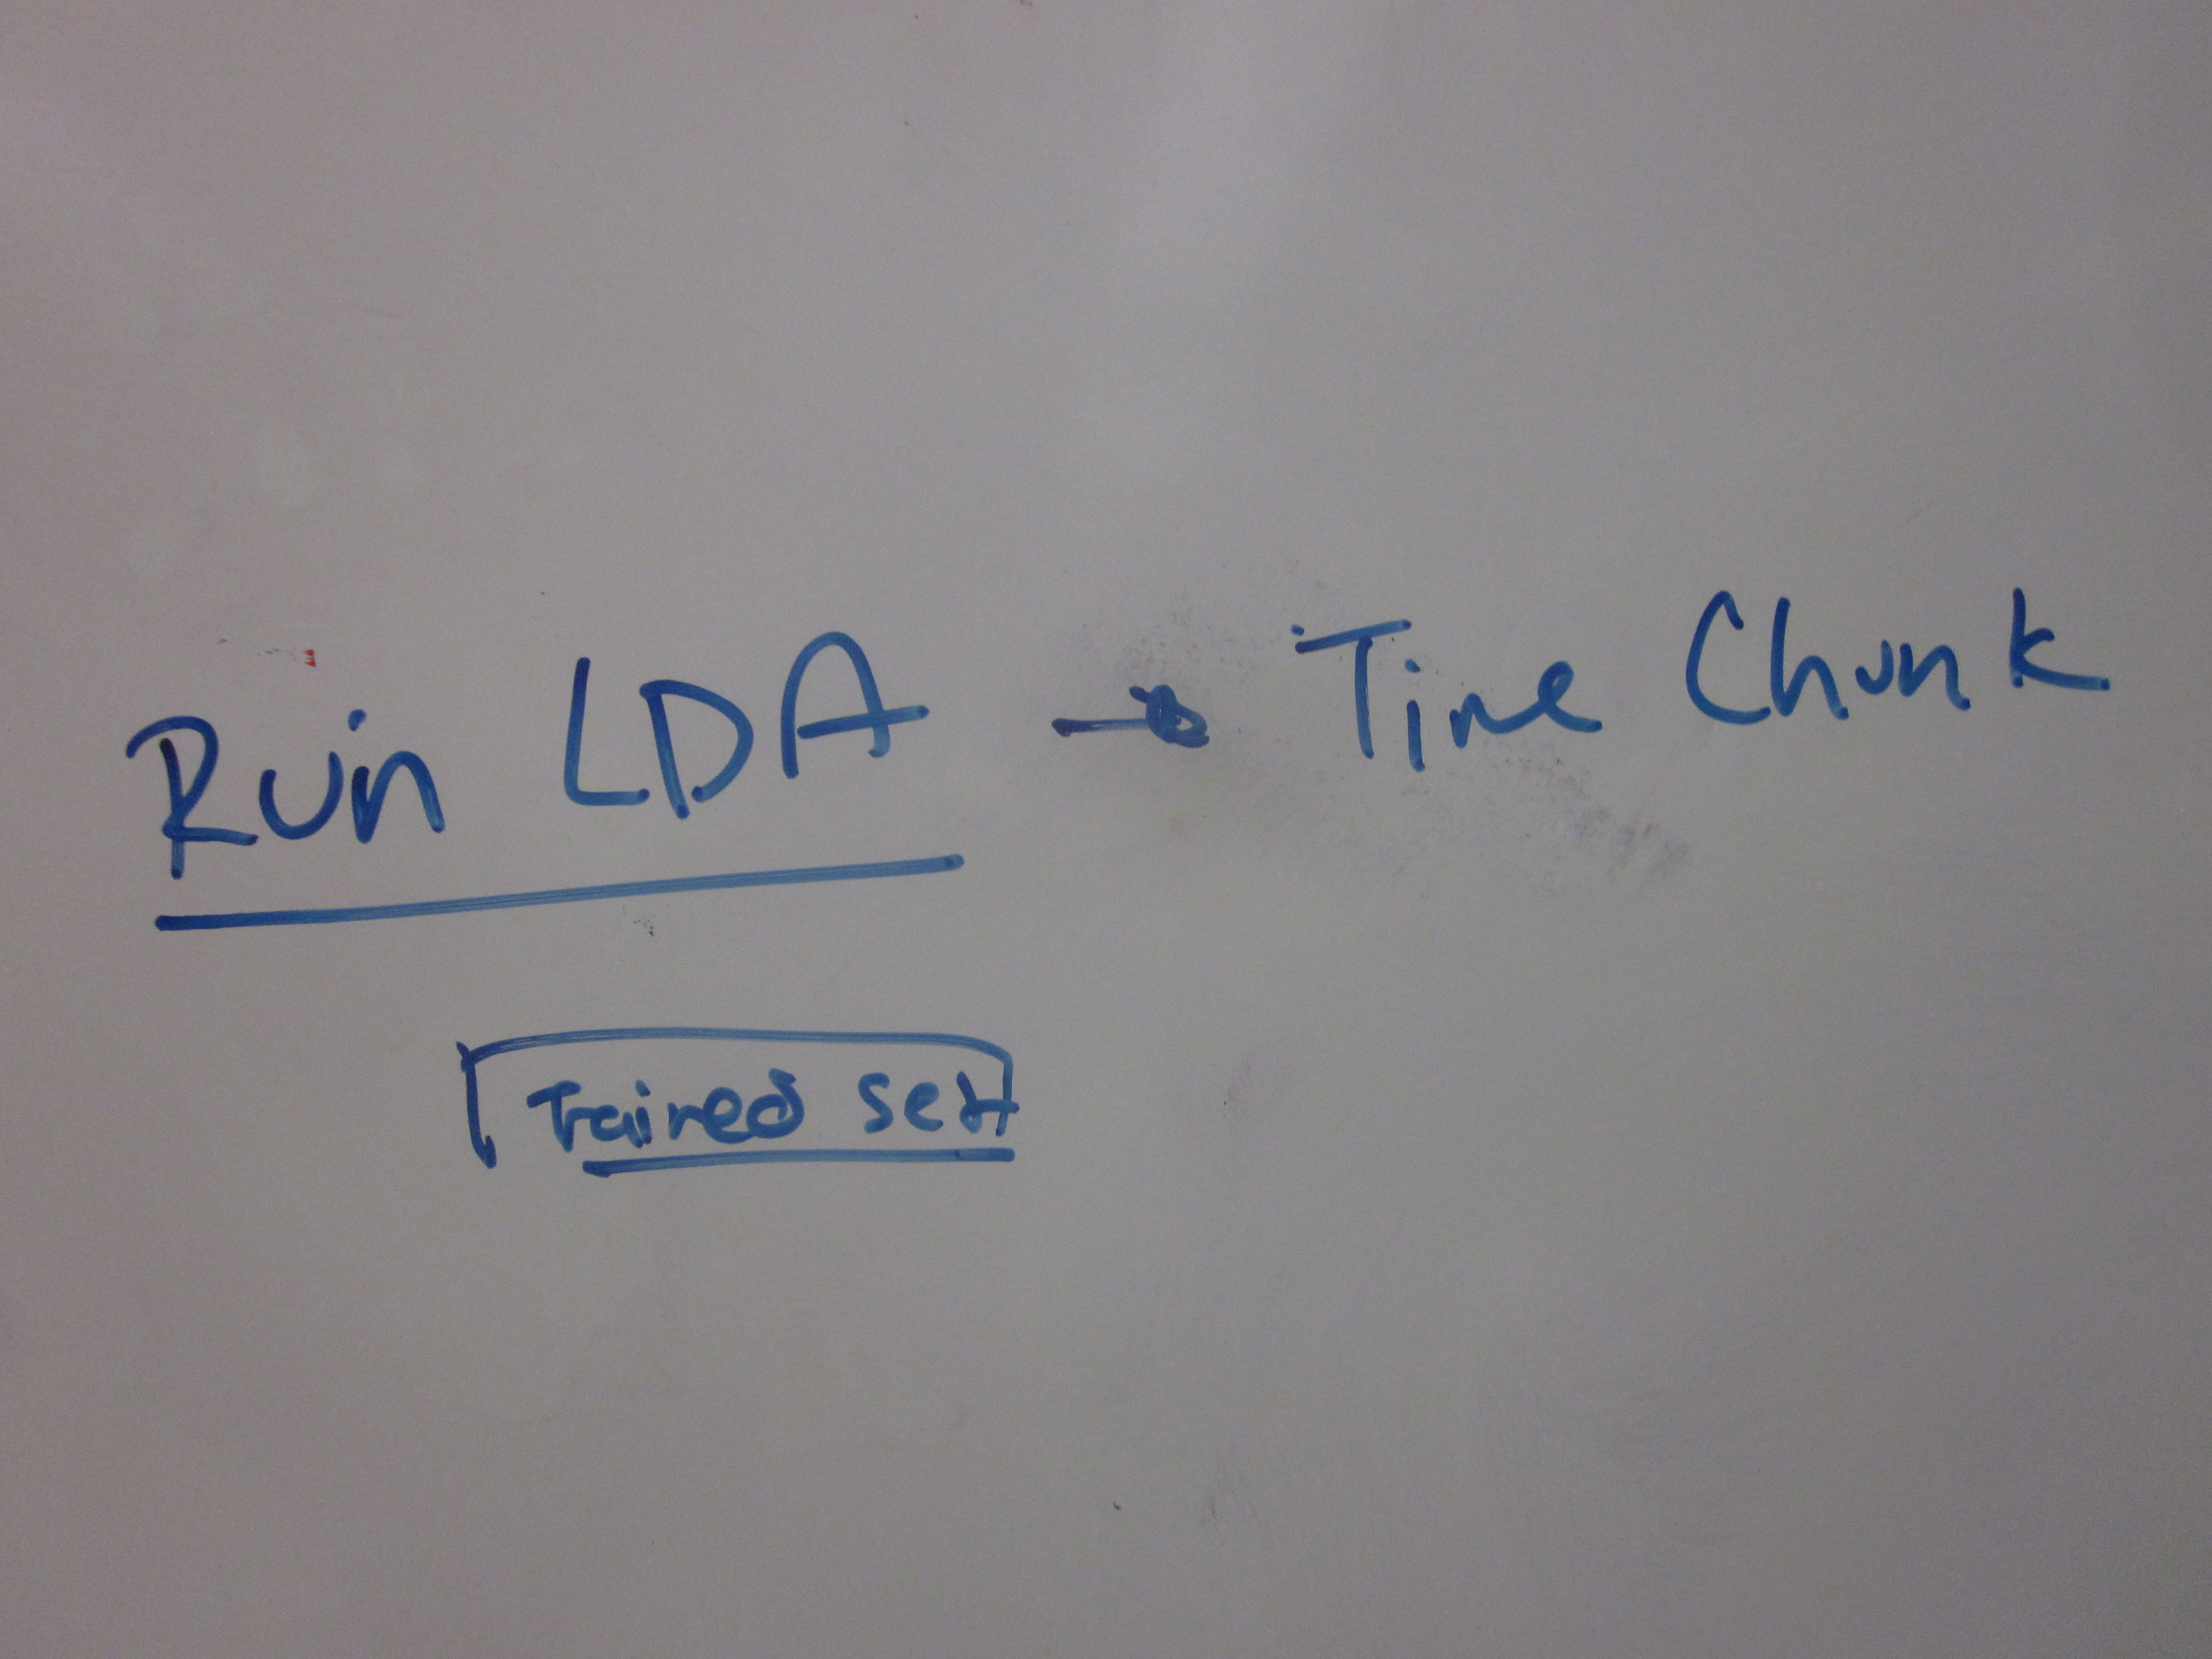 Run LDA → Time Chunk
Trained set